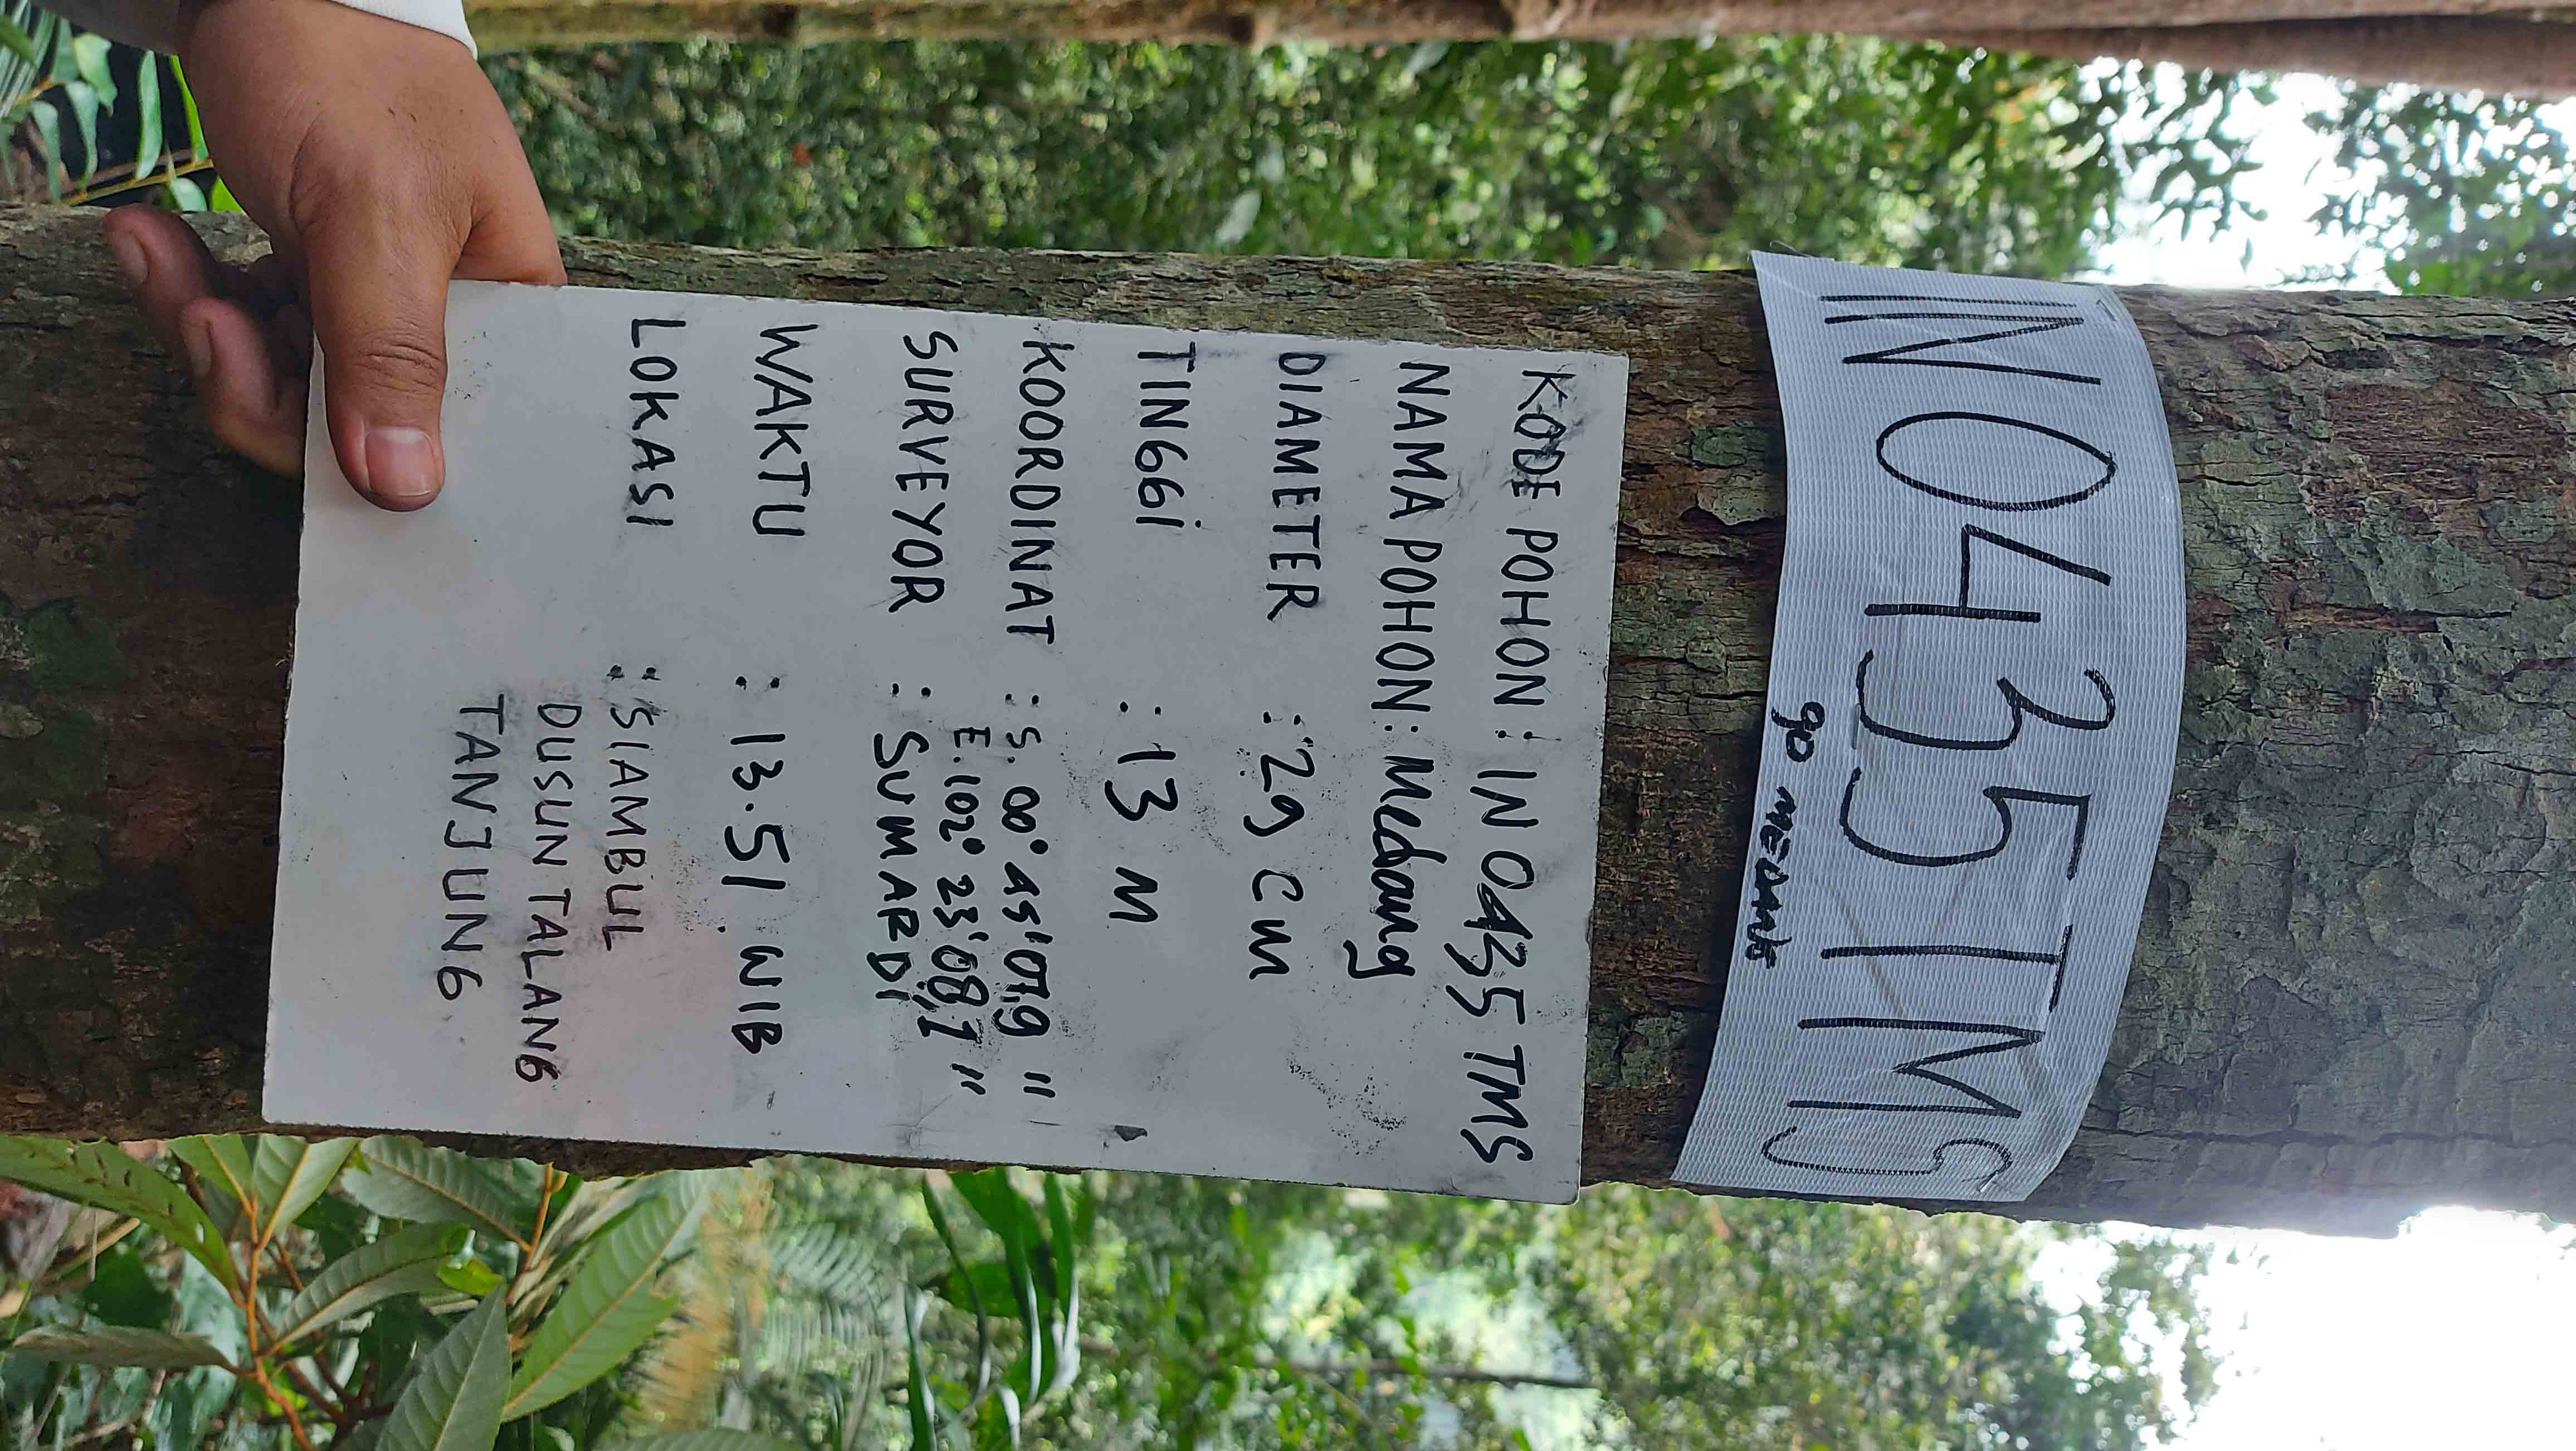 IN0435TMS
90 MEDANG
KODE POHON : IN 0435 TMS
NAMA POHON : Medang
DIAMETER : 29 CM
TINGGi : 13 M
KOORDINAT : S. 00° 45' 07,9 "
E. 102° 23' 08,1 "
SURVEYOR : SUMARDI
WAKTU : 13.51 WIB
LOKASI : SIAMBUL
DUSUN TALANG
TANJUNG